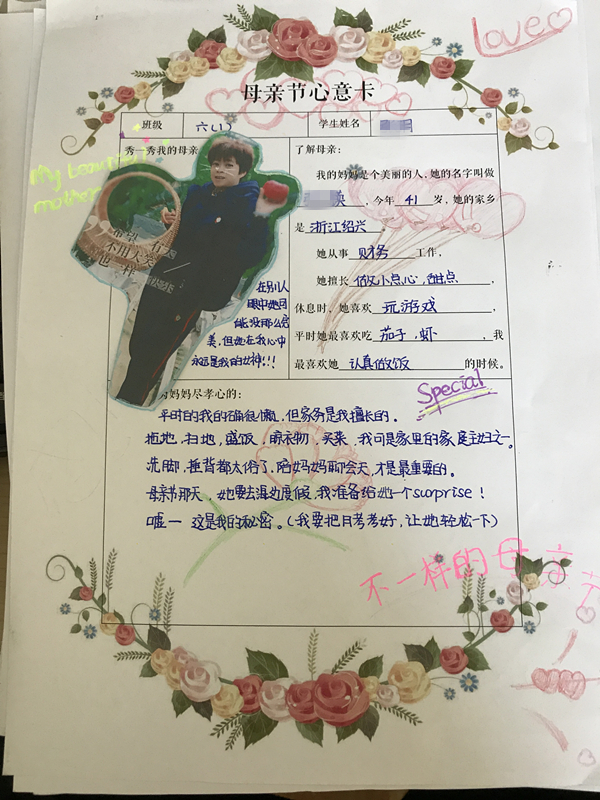 Love
母亲节心意卡
班级 六(1) 学生姓名
秀一秀我的母亲
My beautiful
mother
希望 有
不用大笑
也一样
在别人
眼中她可
能没那么完
美,但她在我心中
永远是我的女神!!!
了解母亲:
我的妈妈是个美丽的人,她的名字叫做
英,今年 41 岁,她的家乡
是 浙江绍兴。
她从事 财务 工作,
她擅长 做小点心,甜点,
休息时、她喜欢 玩游戏,
平时她最喜欢吃 茄子,虾,我
最喜欢她 认真做饭 的时候。
Special
妈妈尽孝心的:
平时的我的确很懒,但家务是我擅长的。
拖地,扫地,盛饭,晾衣物,买菜,我可是家里的家庭主妇之一。
洗脚,捶背都太俗了,陪妈妈聊会天,才是最重要的。
母亲节那天,她要去海边度假,我准备给她一个surprise!
嘘一 这是我的秘密。(我要把月考考好,让她轻松一下)
不一样的母亲节